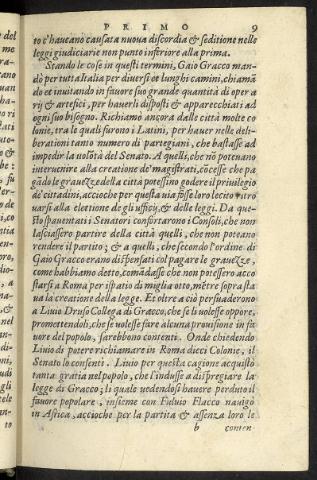 PRIMO 9
to c'haueano causata nuoua discordia & seditione nelle
leggi giudiciarie non punto inferiore alla prima.
Stando le cose in questi termini, Gaio Gracco man-
dò per tutta Italia per diuersi et lunghi camini, chiamã
do et inuitando in fauore suo grande quantità di opera
rij & artefici, per hauerli disposti & apparecchiati ad
ogni suo bisogno. Richiamo ancora dalle città molte co
lonie, tra le quali furono i Latini, per hauer nelle deli-
berationi tanto numero di partegiani, che bastasse ad
impedir la uolõtà del Senato. A quelli, che nõ potenano
interuenire alla creatione de' magistrati, cõcesse che pa
gãdo le grauezze della città potessino godere il priuilegio
de' cittadini, accioche per questa uia fosse loro lecito ritro
uarsi alla elettione degli ufficij, & delle leggi. Da que-
sto spauentati i Senatori confortarono i Consoli, che non
lasciassero partire della città quelli, che non poteano
rendere il partito; & a quelli, che secondo l'ordine di
Gaio Gracco erano dispensati col pagare le grauezze,
come habbiamo detto, comãdasse che non potessero acco
starsi a Roma per ispatio di miglia otto, mẽtre sopra sta
ua la creatione della legge. Et oltre a ciò persuaderono
a Liuio Druso Collega di Gracco, che se li uolesse oppore,
promettendoli, che se uolesse fare alcuna prouisione in fa
uore del popolo, sarebbono contenti. Onde chiedendo
Liuio di potere richiamare in Roma dieci Colonie, il
Senato lo consentì. Liuio per questa cagione acquistò
tanta gratia nel popolo, che l'indusse a dispregiare la
legge di Gracco; li quali uedendosi hauere perduto il
fauore popolare, insieme con Fuluio Flacco nauigò
in Africa, accioche per la partita & assenza loro le
b conten